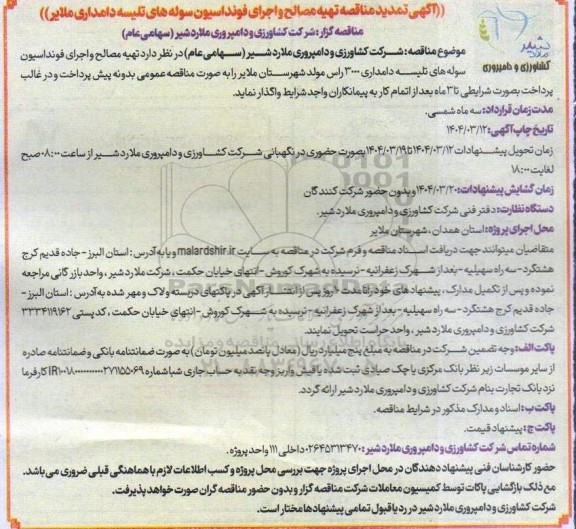 ((آگهی تمدید مناقصه تهیه مصالح و اجرای فونداسیون سوله های تلیسه دامداری ملایر))
مناقصه گزار: شرکت کشاورزی و دامپروری ملارد شیر (سهامی عام)
موضوع مناقصه: شرکت کشاورزی و دامپروری ملارد شیر (سهامی عام) در نظر دارد تهیه مصالح و اجرای فونداسیون
سوله های تلیسه دامداری ۳۰۰۰ راس مولد شهرستان ملایر را به صورت مناقصه عمومی بدونه پیش پرداخت و در غالب
پرداخت بصورت شرایطی تا ۳ ماه بعد از اتمام کار به پیمانکاران واجد شرایط واگذار نماید.
مدت زمان قرارداد: سه ماه شمسی.
تاریخ چاپ آگهی: ۱۴۰۴/۰۳/۱۲
زمان تحویل پیشنهادات ۱۴۰۴/۰۳/۱۲ تا ۱۴۰۴/۰۳/۱۹ بصورت حضوری در نگهبانی شرکت کشاورزی و دامپروری ملارد شیر از ساعت ۰۸:۰۰ صبح
لغایت ۱۸:۰۰
زمان گشایش پیشنهادات: ۱۴۰۴/۰۳/۲۰ و بدون حضور شرکت کنندگان
دستگاه نظارت: دفتر فنی شرکت کشاورزی و دامپروری ملارد شیر.
محل اجرای پروژه: استان همدان، شهرستان ملایر
متقاضیان میتوانند جهت دریافت اسناد مناقصه و فرم شرکت در مناقصه به سایت malardshir.ir و یا به آدرس: استان البرز - جاده قدیم کرج
هشتگرد - سه راه سهیلیه - بعد از شهرک زعفرانیه - نرسیده به شهرک کوروش - انتهای خیابان حکمت، شرکت ملارد شیر، واحد بازرگانی مراجعه
نموده و پس از تکمیل مدارک، پیشنهادهای خود را تا مدت ۱۰ روز پس از انتشار آگهی در پاکتهای دربسته و لاک و مهر شده به آدرس: استان البرز -
جاده قدیم کرج هشتگرد - سه راه سهیلیه - بعد از شهرک زعفرانیه - نرسیده به شهرک کوروش - انتهای خیابان حکمت، کدپستی ۳۳۳۴۱۱۹۱۶۲
شرکت کشاورزی و دامپروری ملارد شیر، واحد حراست تحویل نمایند.
پاکت الف: وجه تضمین شرکت در مناقصه به مبلغ پنج میلیارد ریال (معادل پانصد میلیون تومان) به صورت ضمانتنامه بانکی و ضمانتنامه صادره
از سایر موسسات زیر نظر بانک مرکزی یا چک صیادی ثبت شده یا فیش واریز وجه نقد به حساب جاری شبا شماره
نزد بانک تجارت بنام شرکت کشاورزی و دامپروری ملارد شیر ارائه گردد.
پاکت ب: اسناد و مدارک مذکور در شرایط مناقصه.
پاکت ج: پیشنهاد قیمت.
شماره تماس شرکت کشاورزی و دامپروری ملارد شیر: ۰۲۶۴۵۳۱۳۴۷۰ داخلی ۱۱۱ واحد پروژه.
حضور کارشناسان فنی پیشنهاد دهندگان در محل اجرای پروژه جهت بررسی محل پروژه و کسب اطلاعات لازم با هماهنگی قبلی ضروری می باشد.
مع ذلک بازگشایی پاکات توسط کمیسیون معاملات شرکت مناقصه گزار و بدون حضور مناقصه گران صورت خواهد پذیرفت.
شرکت کشاورزی و دامپروری ملارد شیر در رد یا قبول تمامی پیشنهادها مختار است.
ملارد شیر
کشاورزی و دامپروری